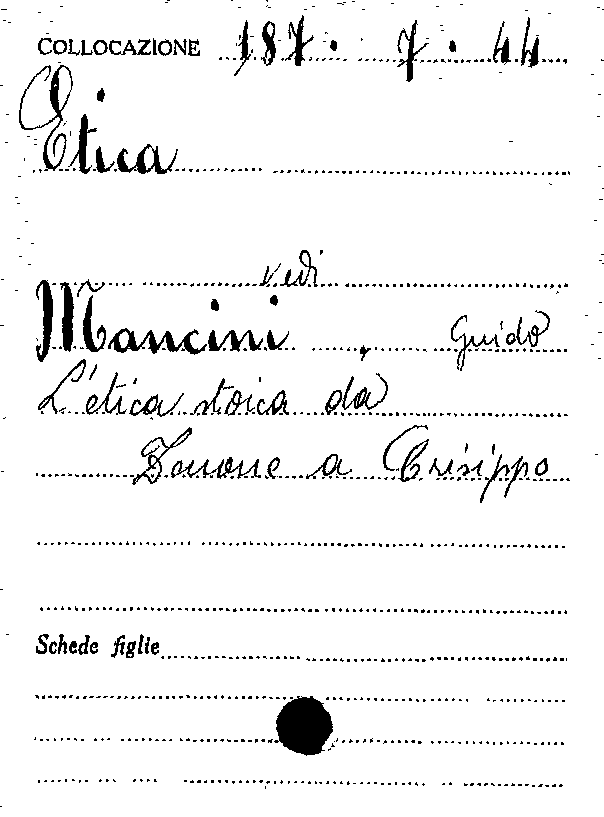 COLLOCAZIONE 187. 7. 44
Etica
vedi
Mancini, Guido
L'etica stoica da
Zenone a Crisippo
Schede figlie